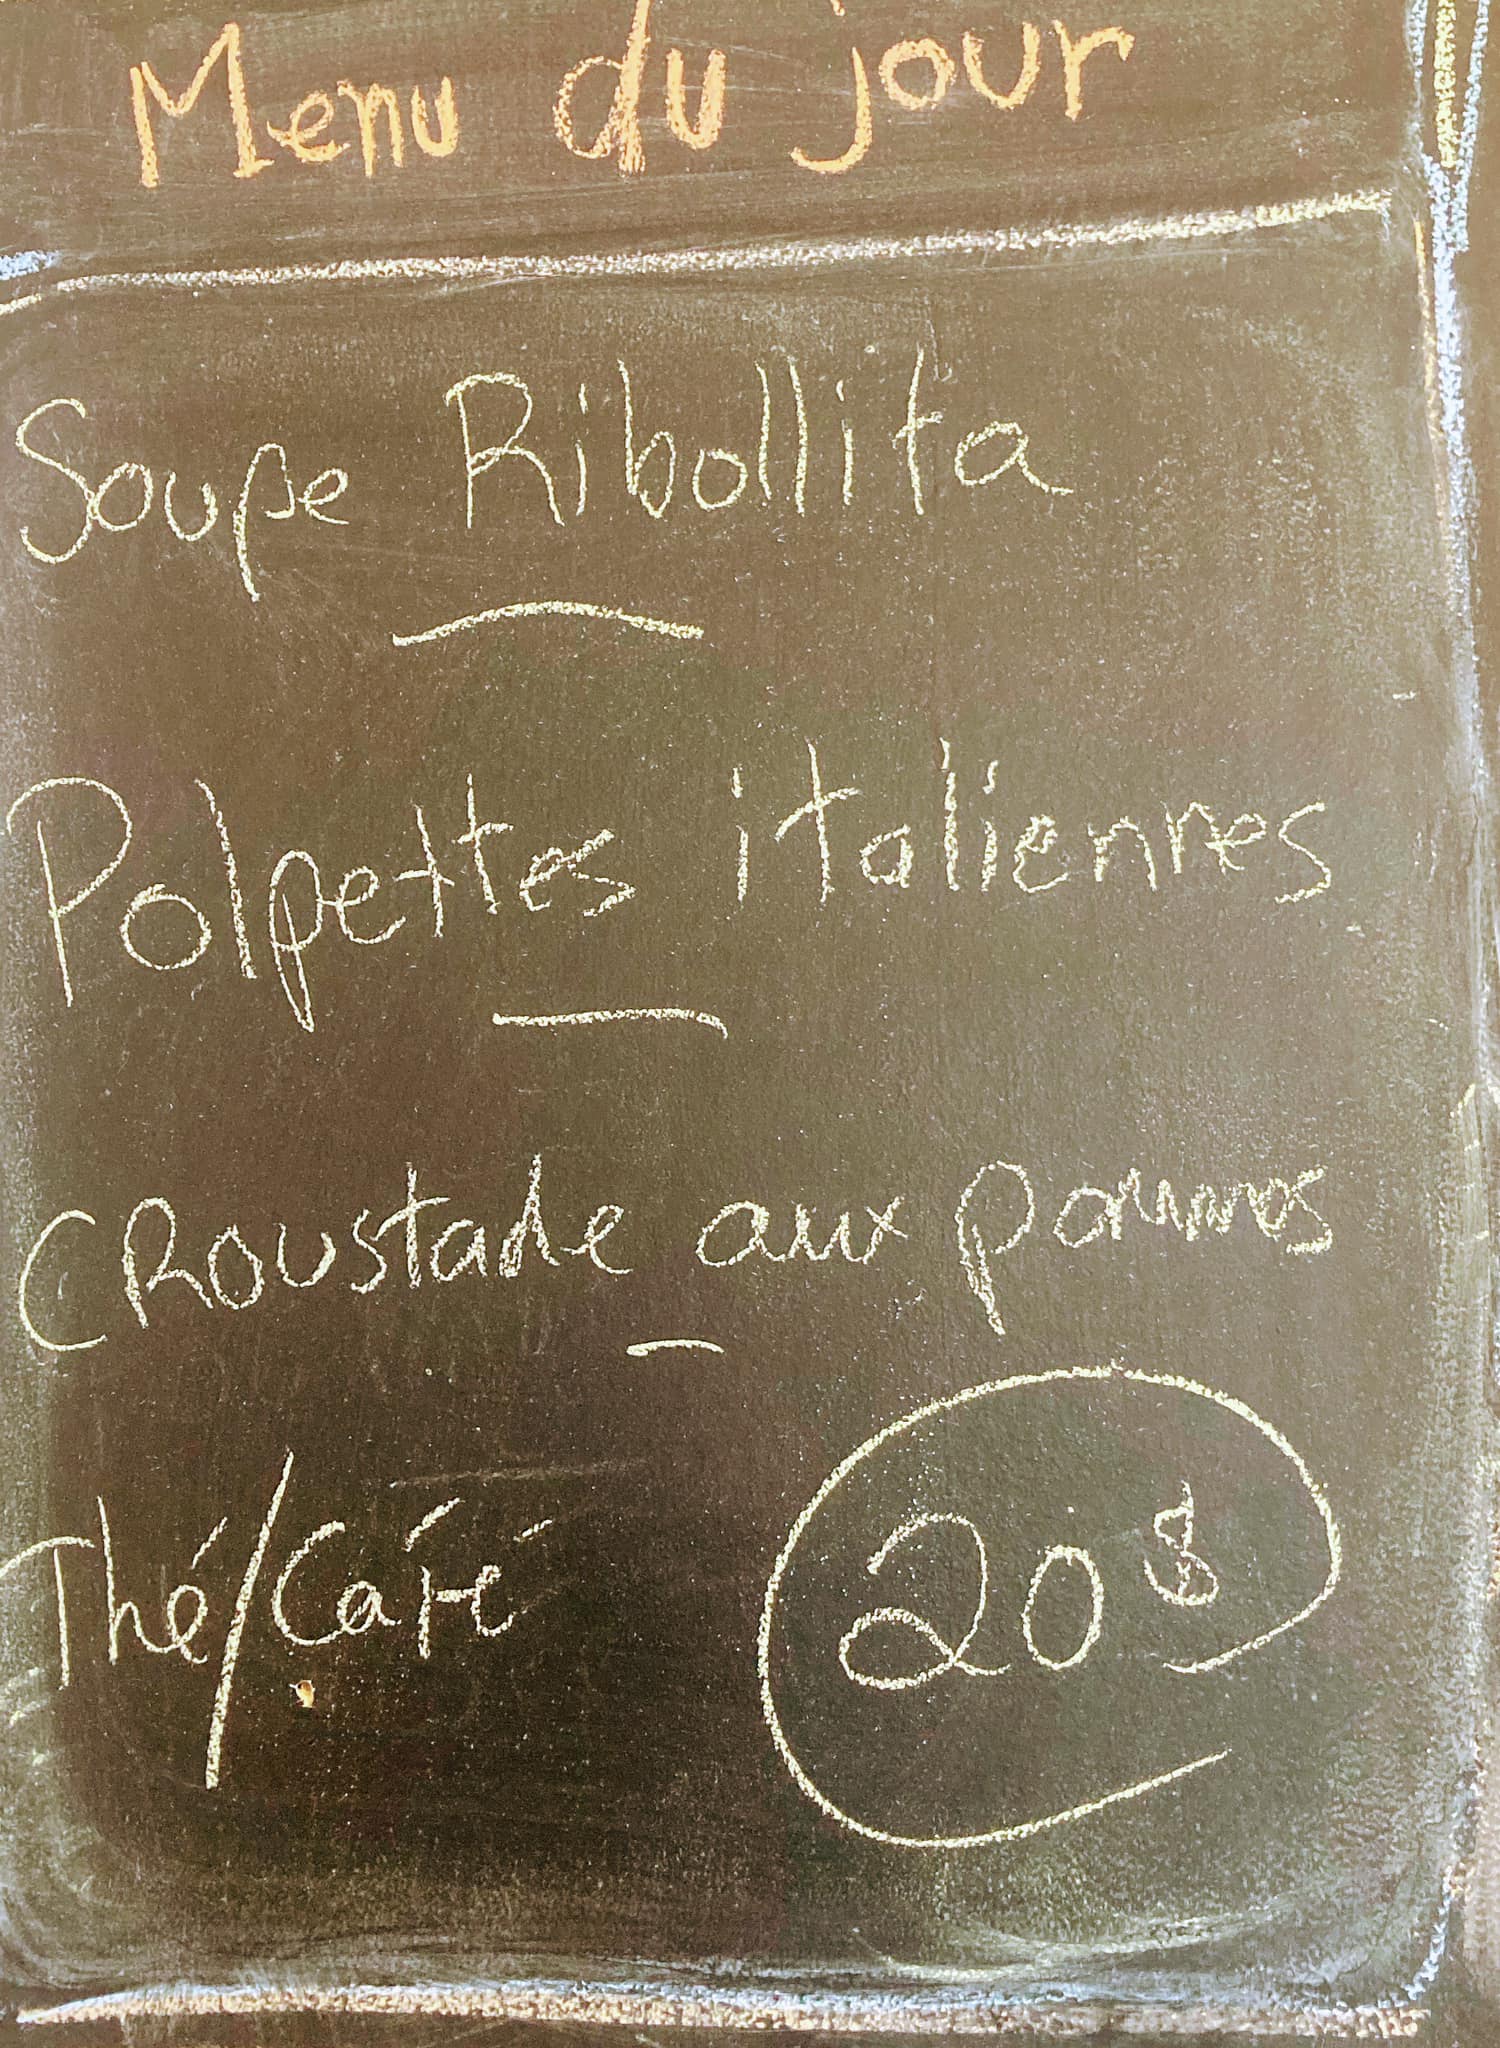 Menu du jour
Soupe Ribollita
Polpettes italiennes
Croustade aux pommes
Thé/Café
20$